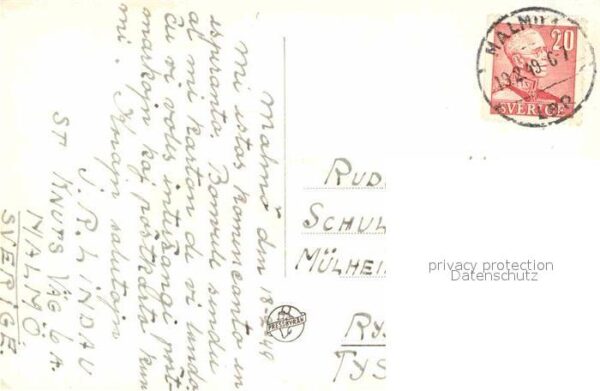 Malmö den 18-2-49
Mi estas komencanto en
esperanto. Bonvulu sendu
al mi karton di vi landa
Ĉu vi volis intiŝangi prit-
markojn kaj postkarta kun
mi. Knajn salutojn
J. R. LINDAU
ST KNUTS VÄG 6A
MALMÖ
SVERIGE.
MALMÖ 1
19.2.49
LBR
20
SVERIGE
RUD
SCHUL
MÜLHEI
RY
TYS
privacy protection
Datenschutz